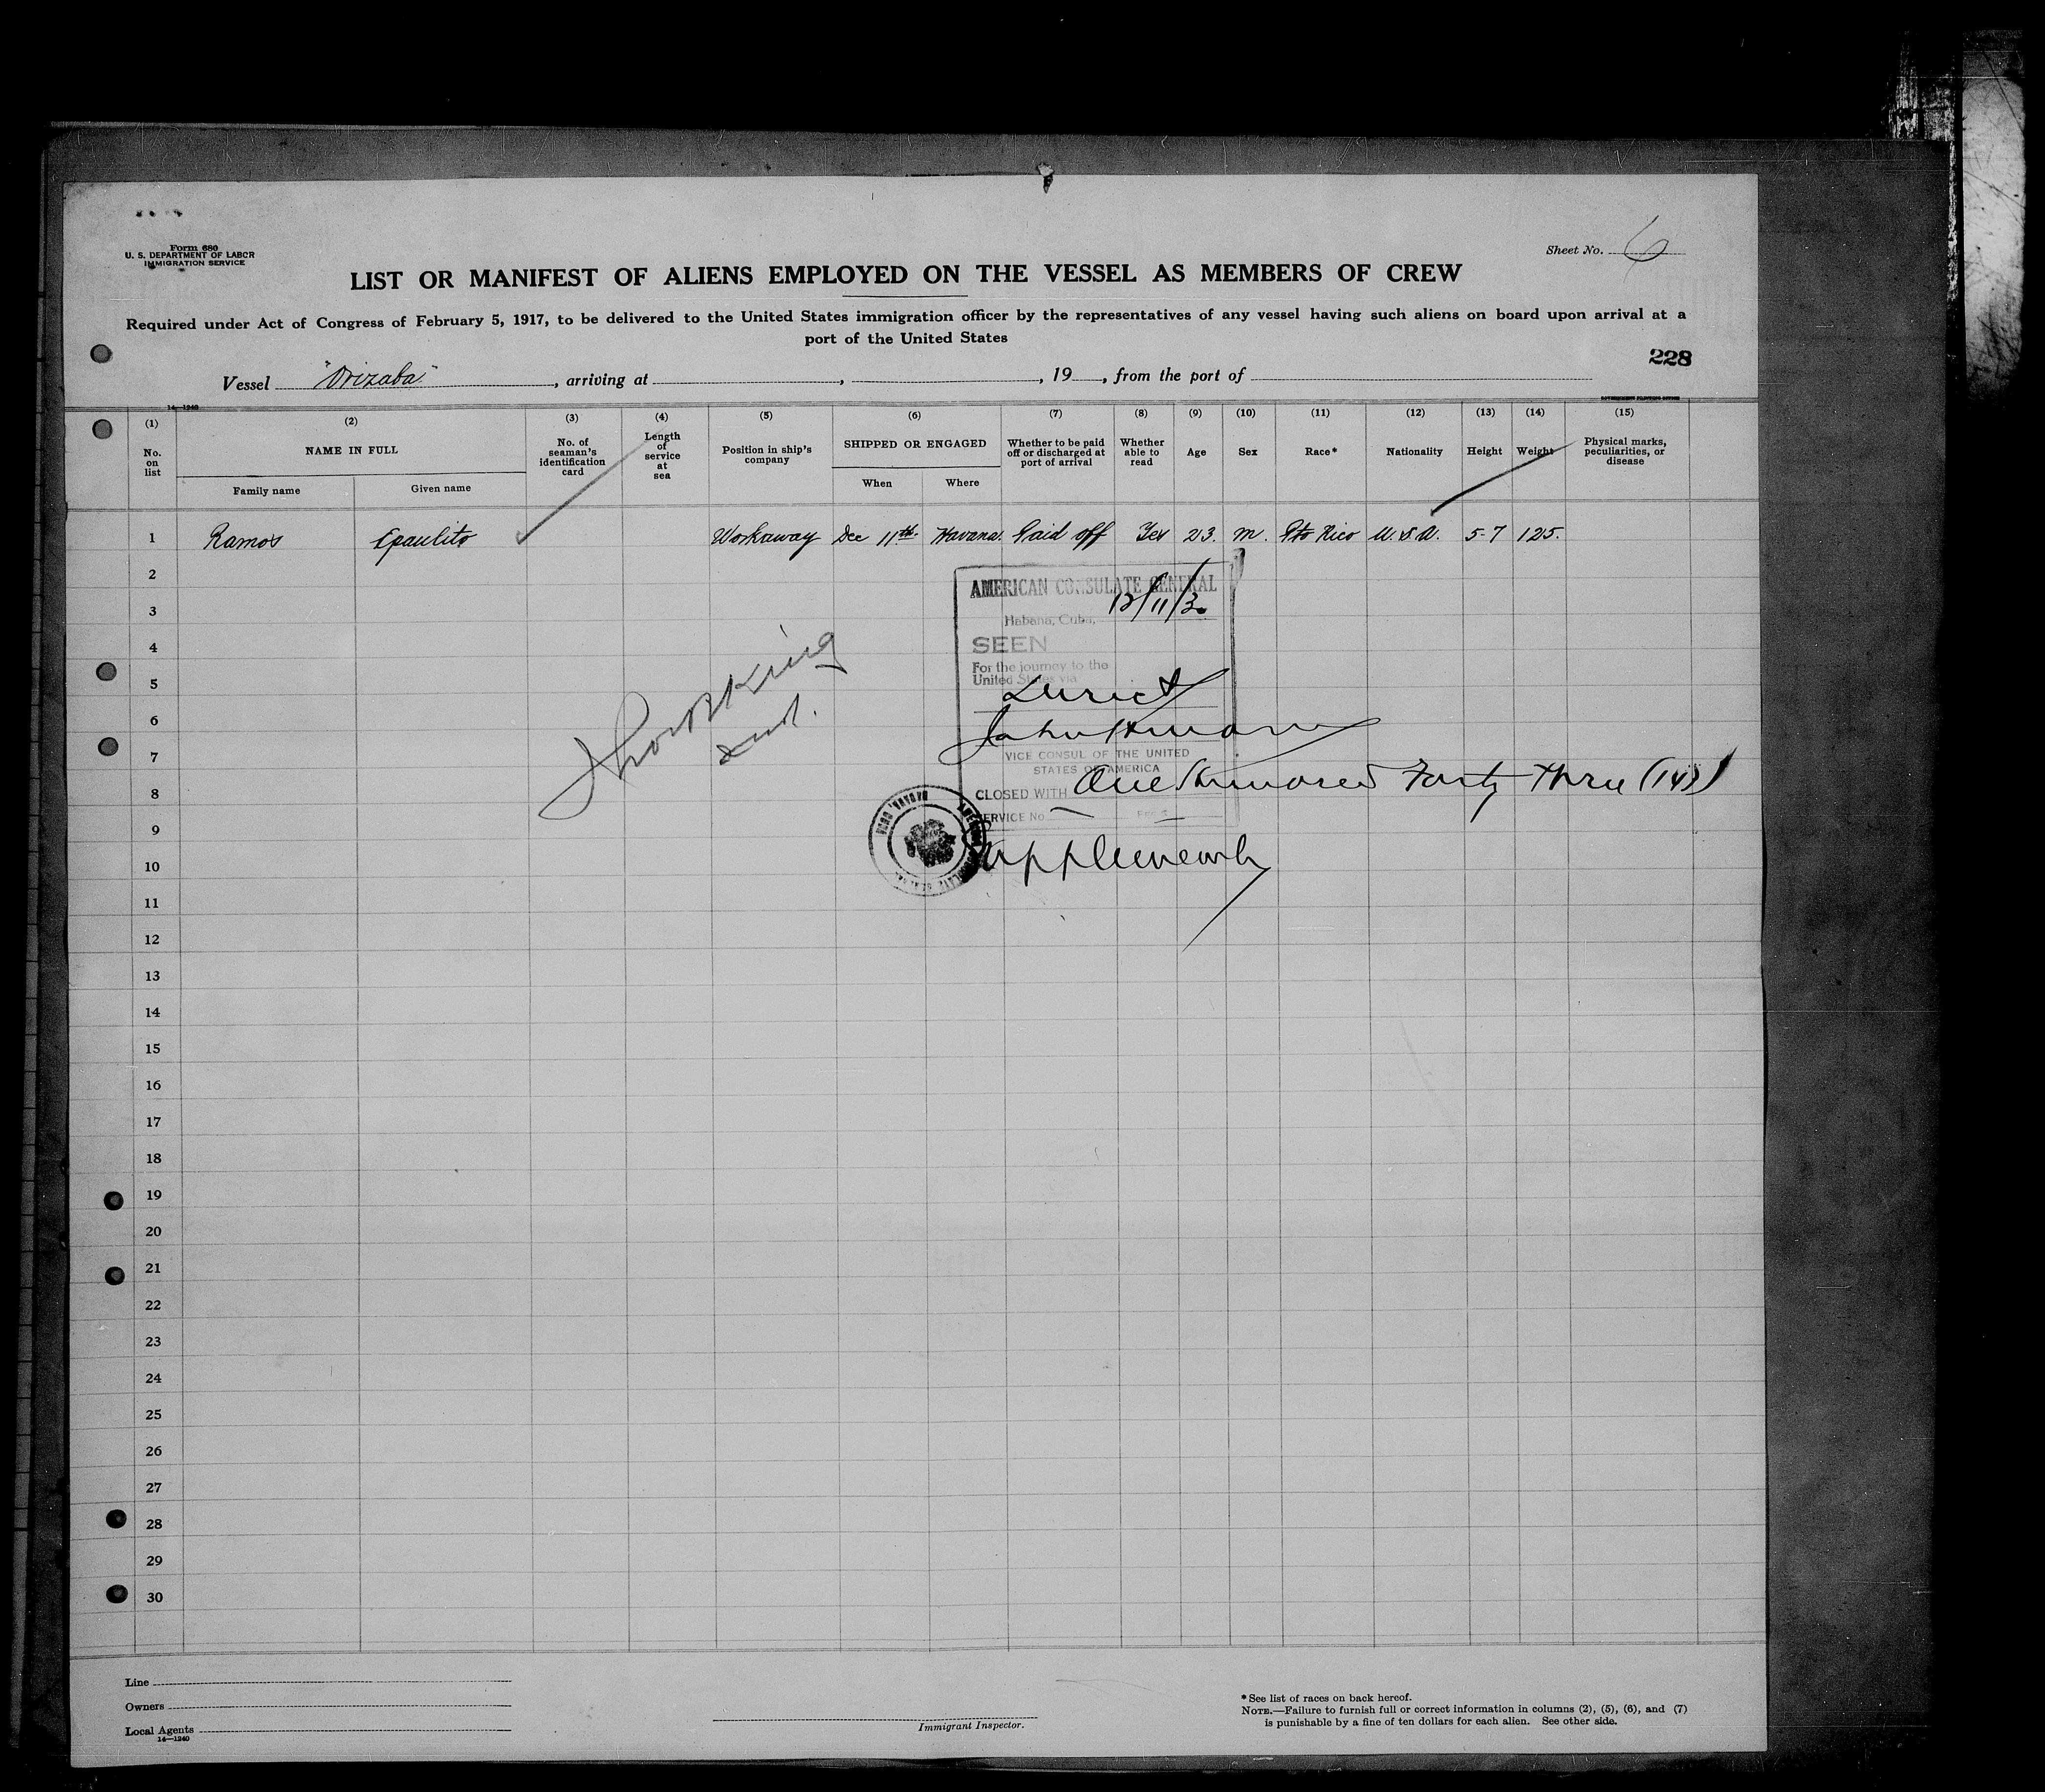 Form 680
U. S. DEPARTMENT OF LABOR
IMMIGRATION SERVICE
Sheet No. 6
LIST OR MANIFEST OF ALIENS EMPLOYED ON THE VESSEL AS MEMBERS OF CREW
Required under Act of Congress of February 5, 1917, to be delivered to the United States immigration officer by the representatives of any vessel having such aliens on board upon arrival at a
port of the United States
228
Vessel "Orizaba", arriving at , , 19 , from the port of
14—1240
GOVERNMENT PRINTING OFFICE
(1) (2) (3) (4) (5) (6) (7) (8) (9) (10) (11) (12) (13) (14) (15)
No. on list
NAME IN FULL
Family name
Given name
No. of seaman's identification card
Length of service at sea
Position in ship's company
SHIPPED OR ENGAGED
When
Where
Whether to be paid off or discharged at port of arrival
Whether able to read
Age
Sex
Race*
Nationality
Height
Weight
Physical marks, peculiarities, or disease
1 Ramos Epaulito Workaway Dec 11th Havana. Paid off Yes 23. m. Pto Rico U.S.A. 5-7 125.
2
3
4
5
6
7
8
9
10
11
12
13
14
15
16
17
18
19
20
21
22
23
24
25
26
27
28
29
30
AMERICAN CONSULATE GENERAL
12/11/30
Habana, Cuba,
SEEN
For the journey to the
United States via
Direct
VICE CONSUL OF THE UNITED
STATES OF AMERICA
CLOSED WITH One Hundred Forty Three (143)
SERVICE No. Fee
Supplementary
Line
Owners
Local Agents
14—1240
Immigrant Inspector.
*See list of races on back hereof.
NOTE.—Failure to furnish full or correct information in columns (2), (5), (6), and (7)
is punishable by a fine of ten dollars for each alien. See other side.